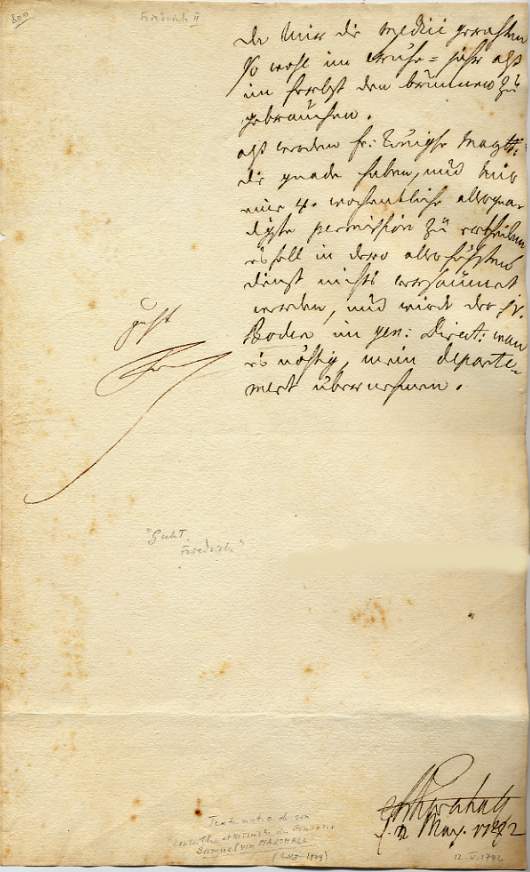 Friedrich II
Da mir die Medici gerathen
so wohl im Früh-jahr alß
im herbst den brunnen zu
gebrauchen.
alß werden Er: Königl: Maytt:
die gnade haben, und mir
eine 4. wochentliche allergnä-
digste permission zu ertheilen
es soll in dero allerhöchsten
dienst nichts versäumet
werden, und wird der Hr.
Boden im gen: Direct: wan
es nöthig, mein departe-
ment übernehmen.
guht
Fr
"Guht
Friedrich"
Marschall
12 May 1742
Samuel von MARSCHALL
12.V.1742